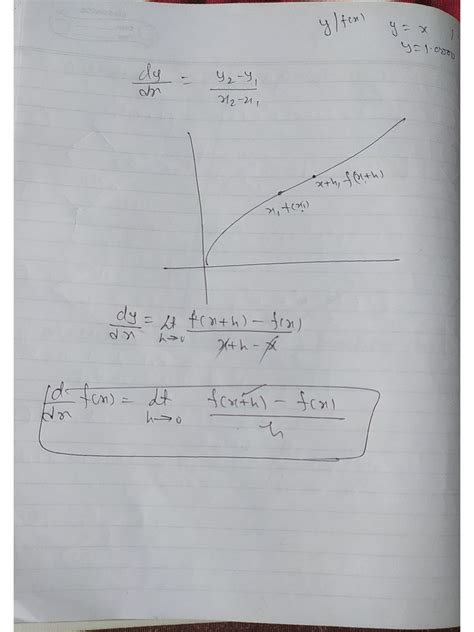 y/f(x)
y = x
dy/dx = y2-y1/x2-x1
x+h, f(x+h)
x, f(x)
dy/dx = Lt h→0 f(x+h) - f(x)/x+h-x
d/dx f(x) = dt h→0 f(x+h) - f(x)/h